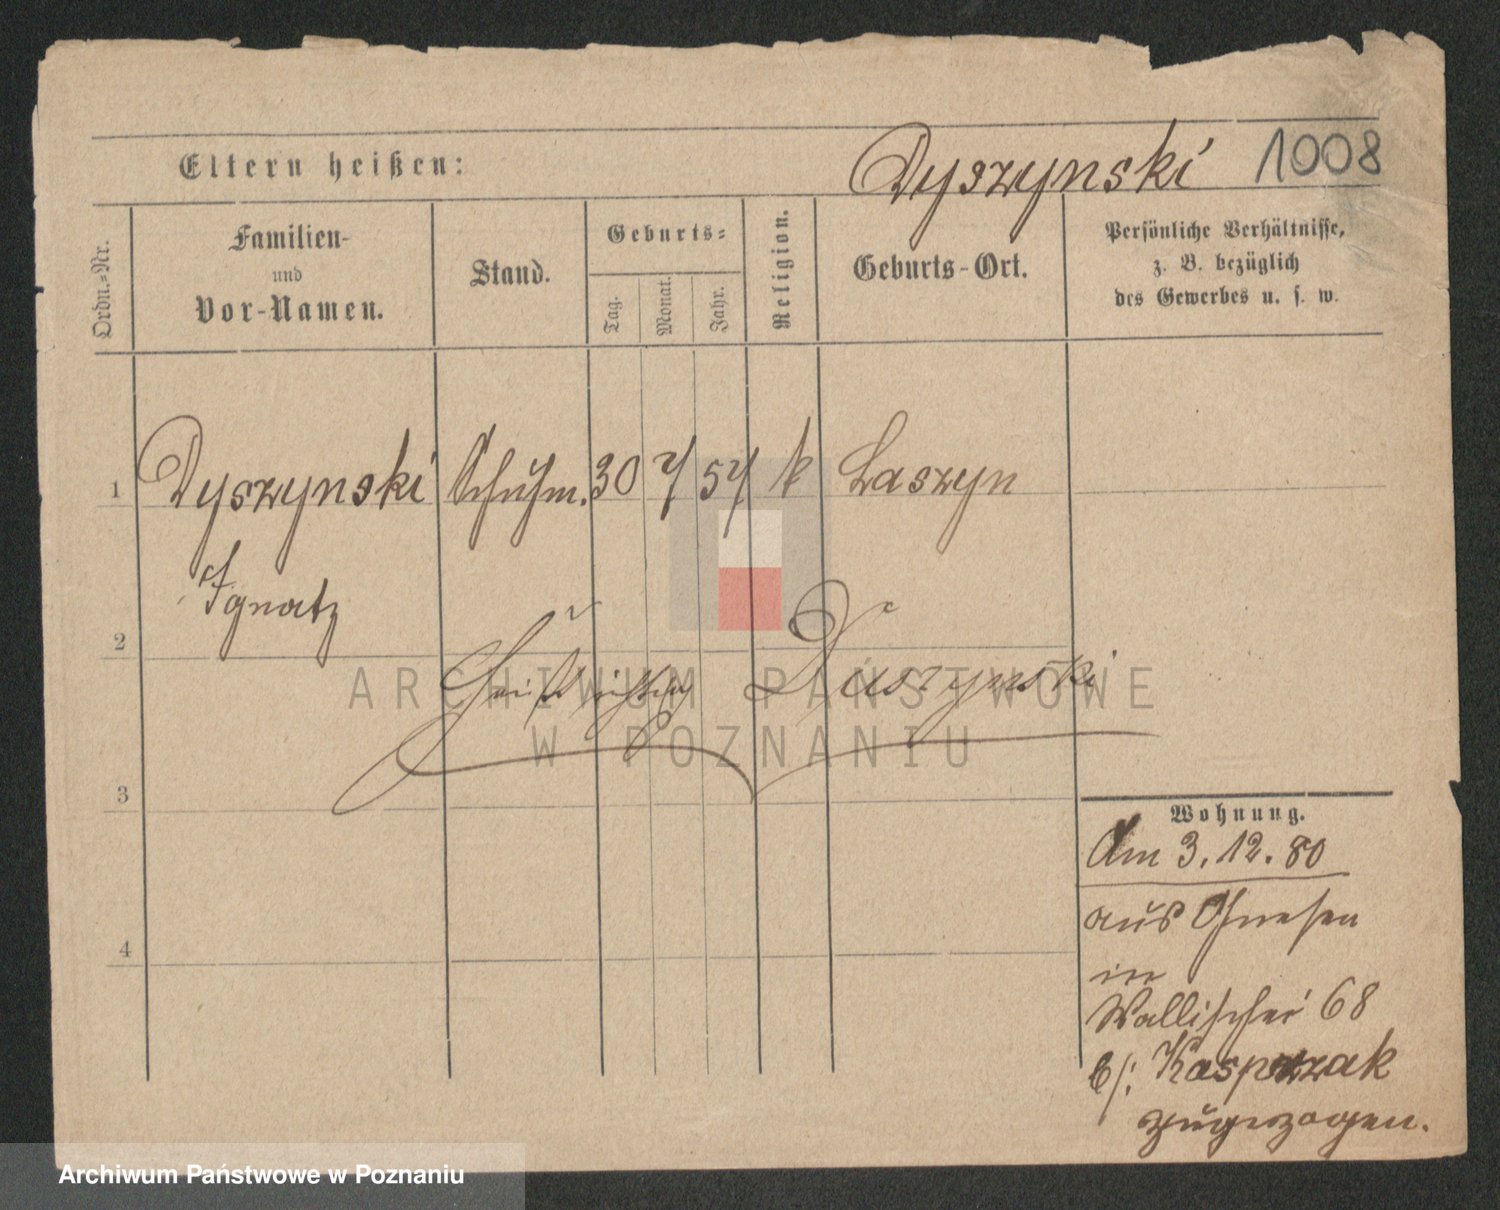 Dyszynski 1008
Eltern heißen:
Ordn.-Nr.
Familien-
und
Vor-Namen.
Stand.
Geburts-
Tag.
Monat.
Jahr.
Religion.
Geburts-Ort.
Persönliche Verhältnisse,
z. B. bezüglich
des Gewerbes u. s. w.
1 Dyszynski Schuhm. 30 7 57 k Laszyn
Ignatz
2
Duszynski
ARCHIWUM PAŃSTWOWE
W POZNANIU
3
4
Wohnung.
Am 3.12.80
aus Gnesen
in
Wallischei 68
b/: Kasprzak
zugezogen.
Archiwum Państwowe w Poznaniu